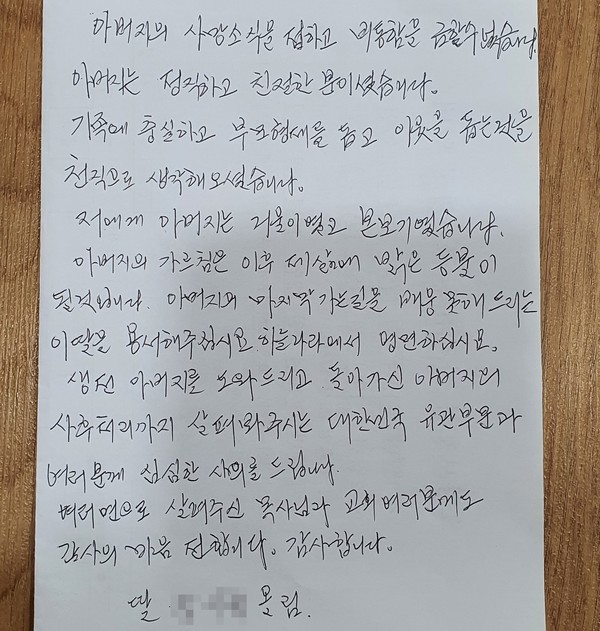 아버지의 사망소식을 접하고 비통함을 금할수 없습니다.
아버지는 정직하고 친절한 분이셨습니다.
가족에 충실하고 부모형제를 돕고 이웃을 돕는것을
천직으로 생각해오셨습니다.
저에게 아버지는 거울이였고 본보기였습니다.
아버지의 가르침은 이후 제 삶에 밝은 등불이
될것입니다. 아버지의 마지막 가는길을 배웅 못해드리는
이딸을 용서해주십시요. 하늘나라에서 명면하십시요.
생전 아버지를 도와드리고 돌아가신 아버지의
사후처리까지 살펴봐주시는 대한민국 유관부문과
여러분께 심심한 사의를 드립니다.
여러면으로 살펴주신 목사님과 교회여러분께도
감사의 마음 전합니다. 감사합니다.
딸 올림.